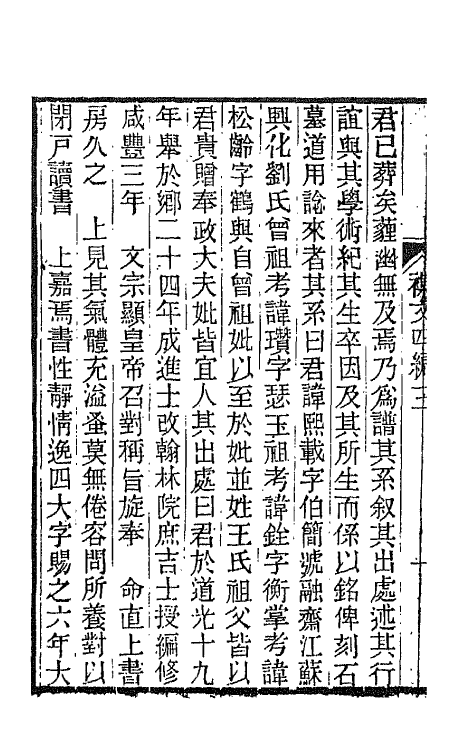 君已葬矣薶幽無及焉乃爲譜其系叙其出處述其行
誼與其學術紀其生卒因及其所生而係以銘俾刻石
墓道用諗來者其系曰君諱熙載字伯簡號融齋江蘇
興化劉氏曾祖考諱瓚字瑟玉祖考諱銓字衡掌考諱
松齡字鶴與自曾祖妣以至於妣並姓王氏祖父皆以
君貴贈奉政大夫妣皆宜人其出處曰君於道光十九
年舉於鄉二十四年成進士改翰林院庶吉士授編修
咸豐三年　文宗顯皇帝召對稱旨旋奉　命直上書
房久之　上見其氣體充溢蚤莫無倦容問所養對以
閉戸讀書　上嘉焉書性靜情逸四大字賜之六年大
襍文四編三
十